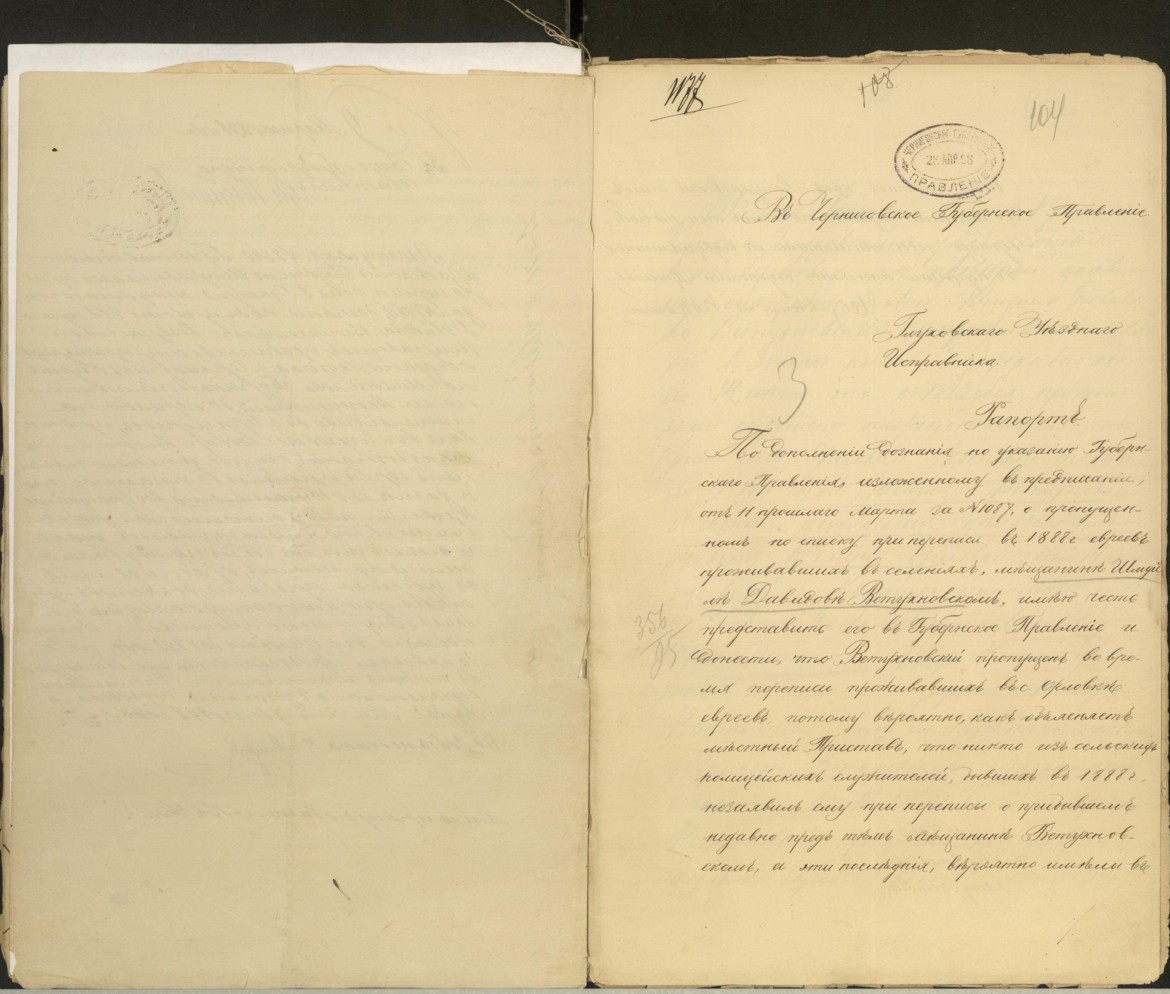 1177
108
104
ЧЕРНИГОВСКОЕ ГУБЕРНСКОЕ
ПРАВЛЕНІЕ
Въ Черниговское Губернское Правленіе
Глуховскаго Уѣзднаго
Исправника.
3
Рапортъ
По дополненіи дознанія по указанію Губерн-
скаго Правленія, изложенному въ предписаніи,
отъ 11 прошлаго Марта за №1087, о пропущен-
номъ по списку при переписи въ 1888 г евреевъ
проживавшихъ въ селеніяхъ, мѣщанинѣ Шмуй
лѣ Давидовѣ Ветухновскомъ, имѣю честь
представить его въ Губернское Правленіе и
356
95
донести, что Ветухновскій пропущенъ во вре-
мя переписи проживавшихъ въ с Орловкѣ
евреевъ потому вѣроятно, какъ объясняетъ
мѣстный Приставъ, что никто изъ сельскихъ
полицейскихъ служителей, бывшихъ въ 1888 г.
незаявилъ ему при переписи о прибывшемъ
недавно предъ тѣмъ мѣщанинѣ Ветухнов-
скомъ, а эти послѣднія, вѣроятно имѣли въ